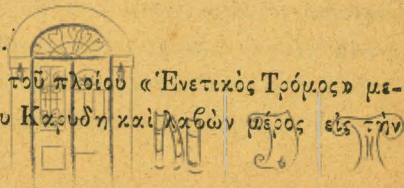 τοῦ πλοίου «Ἐνετικὸς Τρόμος» με-
υ Καρύδη καὶ λαβὼν μέρος εἰς τὴν